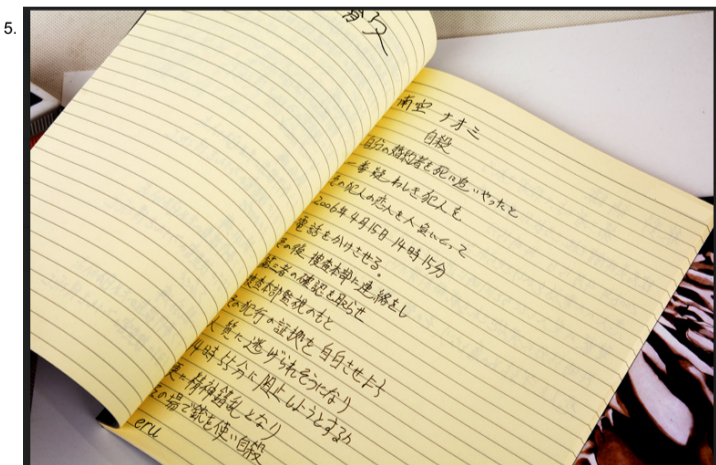 5.
南空 ナオミ
自殺
自分の婚約者を死に追いやったと
一番疑わしき犯人を
その犯人の恋人を人質にとって
2006年4月15日 14時15分
電話をかけさせる。
その後 捜査本部に連絡をし
者の確認を取らせ
捜査本部監視のもと
の犯行の証拠を自白させよう
人質に逃げられそうになり
4時55分に阻止しようとするが
精神錯乱となり
の場で銃を使い自殺
eru